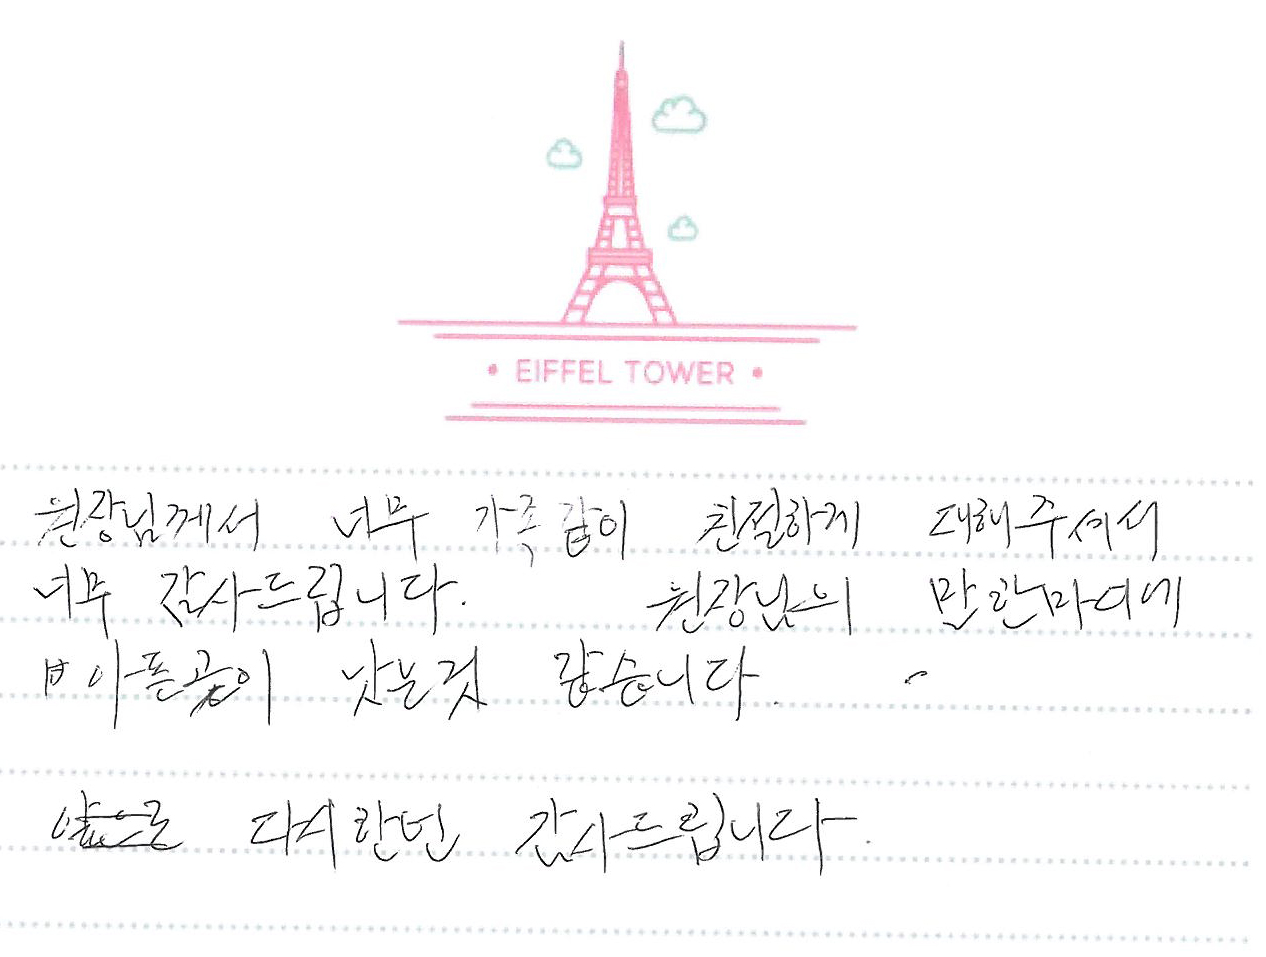 • EIFFEL TOWER •
원장님께서 너무 가족같이 친절하게 대해주셔서
너무 감사드립니다. 원장님의 말 한마디에
아픈곳이 낫는것 같습니다.
앞으로 다시한번 감사드립니다.